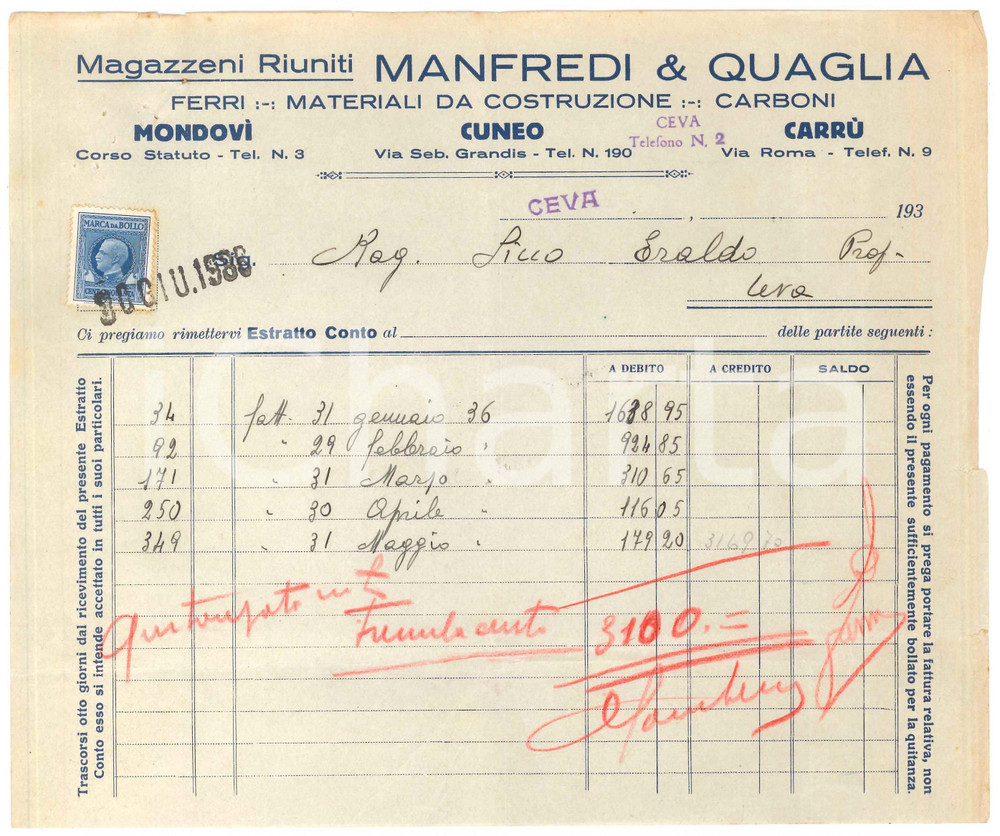 Magazzeni Riuniti MANFREDI & QUAGLIA
FERRI :-: MATERIALI DA COSTRUZIONE :-: CARBONI
MONDOVÌ CUNEO CARRÙ
Corso Statuto - Tel. N. 3 Via Seb. Grandis - Tel. N. 190 Via Roma - Telef. N. 9
CEVA
Telefono N. 2
CEVA , 193
MARCA DA BOLLO
GIU.1936
Sig. Rag. Eraldo Prof.
Ceva
Ci pregiamo rimettervi Estratto Conto al delle partite seguenti :
A DEBITO A CREDITO SALDO
34 fatt. 31 gennaio 36 1638 95
92 " 29 febbraio " 924 85
171 " 31 Marzo " 310 65
250 " 30 Aprile " 116 05
349 " 31 Maggio " 179 20 3169 70
3100.=
Trascorsi otto giorni dal ricevimento del presente Estratto
Conto esso si intende accettato in tutti i suoi particolari.
Per ogni pagamento si prega portare la fattura relativa, non
essendo il presente sufficientemente bollato per la quitanza.
Charta